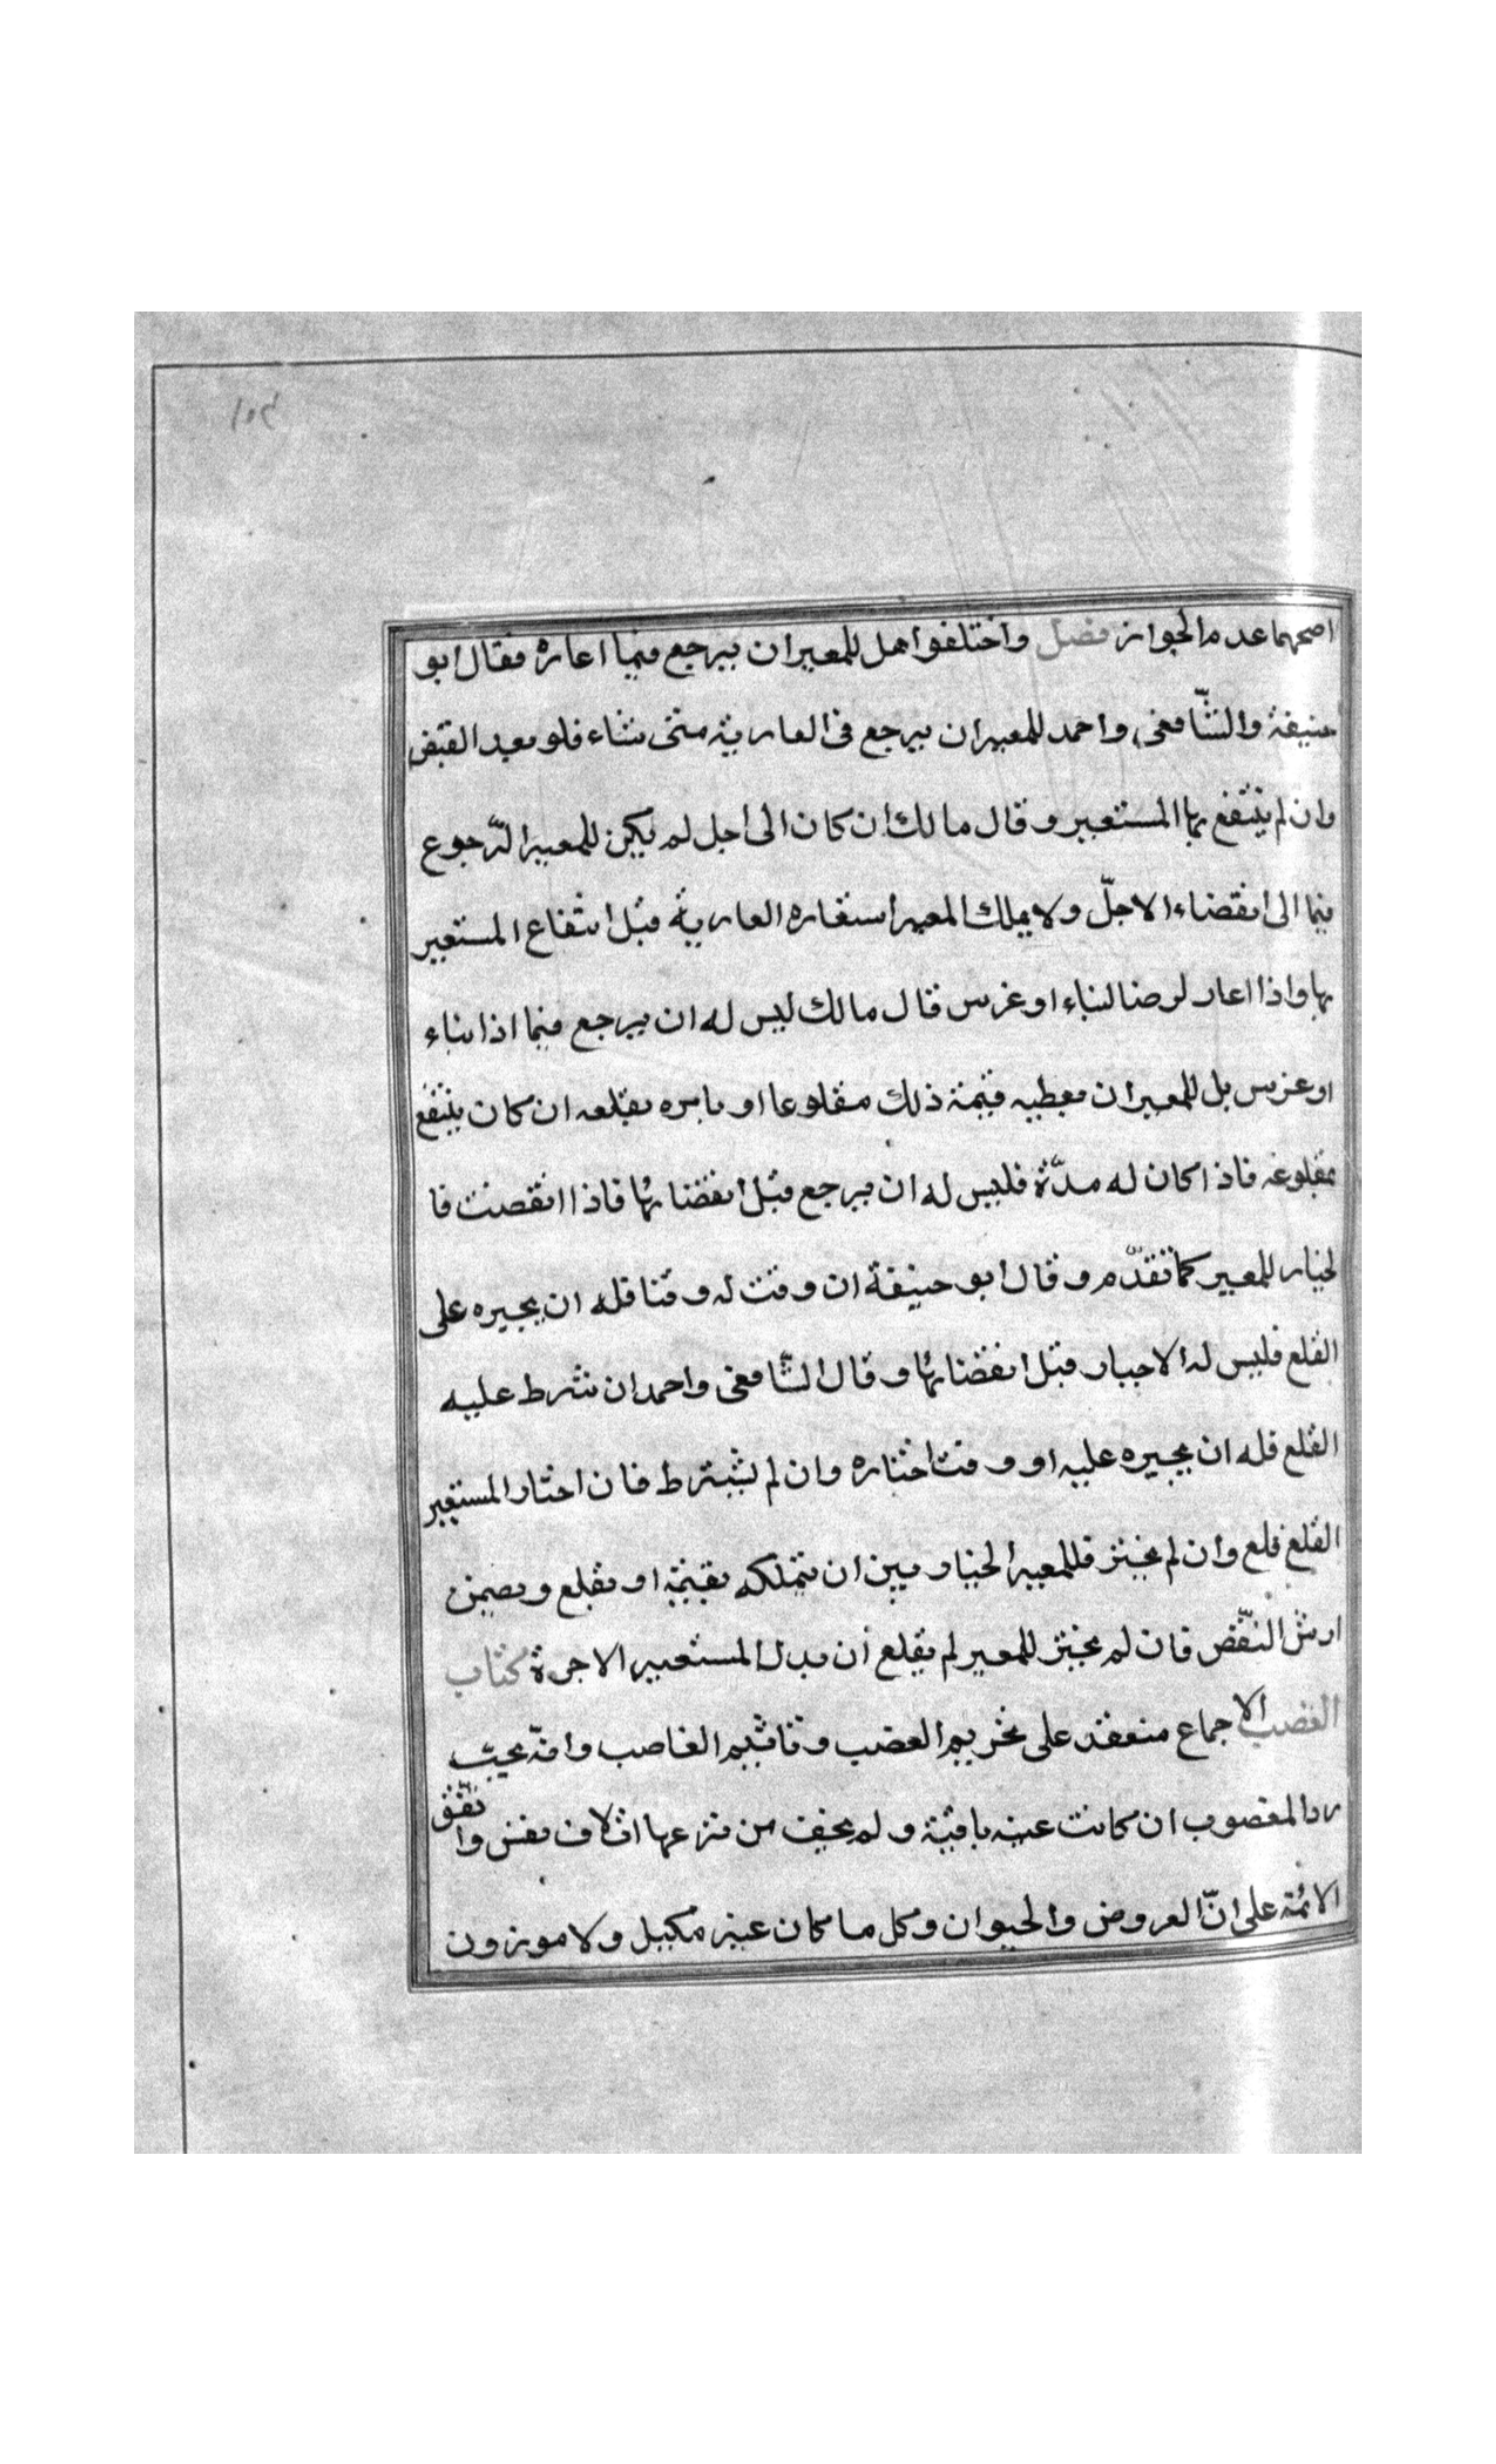 ١٥٤
اصحهما عدم الجواز فصل واختلفوا هل للمعير ان يرجع فيما اعاره فقال ابو
حنيفة والشّافعي واحمد للمعير ان يرجع في العارية متى شاء فلو بعد القبض
وان لم ينتفع بها المستعير وقال مالك ان كان الى اجل لم يكن للمعير الرّجوع
فيما الى انقضاء الاجلّ ولا يملك المعير استعاره العارية قبل انتفاع المستعير
بها واذا اعار لرضا لبناء او غرس قال مالك ليس له ان يرجع فيما اذا بناء
او غرس بل للمعير ان يعطيه قيمة ذلك مقلوعا او يامره بقلعه ان كان ينتفع
بمقلوعه فاذا كان له مدّة فليس له ان يرجع قبل انقضائها فاذا انقضت فا
لخيار للمعير كما تقدّم وقال ابو حنيفة ان وقت له وقتا فله ان يجبره على
القلع فليس له الاجبار قبل انقضائها وقال الشّافعي واحمد ان شرط عليه
القلع فله ان يجبره عليه او وقت اختاره وان لم يشترط فان اختار المستعير
القلع قلع وان لم يختر فللمعير الخيار بين ان يتملكه بقيمة او يقلع ويضمن
ارش النّقض فان لم يختر للمعير لم يقلع ان بدل المستعير الاجرة كتاب
الغضب الاجماع منعقد على تحريم الغضب وتاثيم الغاصب وانّه يجب
رد المغصوب ان كانت عينه باقية ولم يخف من نزعها اتلاف نفس واتّفق
الائمّة على انّ العروض والحيوان وكل ما كان غير مكيل ولا موزون